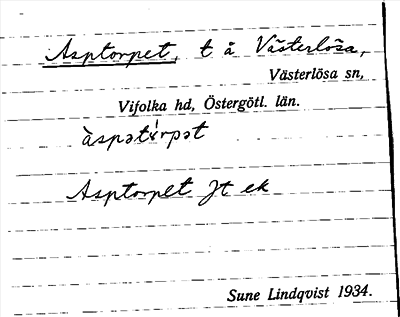 Asptorpet, t å Västerlösa,
Västerlösa sn,
Vifolka hd, Östergötl. län.
àspət
Asptorpet Jt ek
Sune Lindqvist 1934.